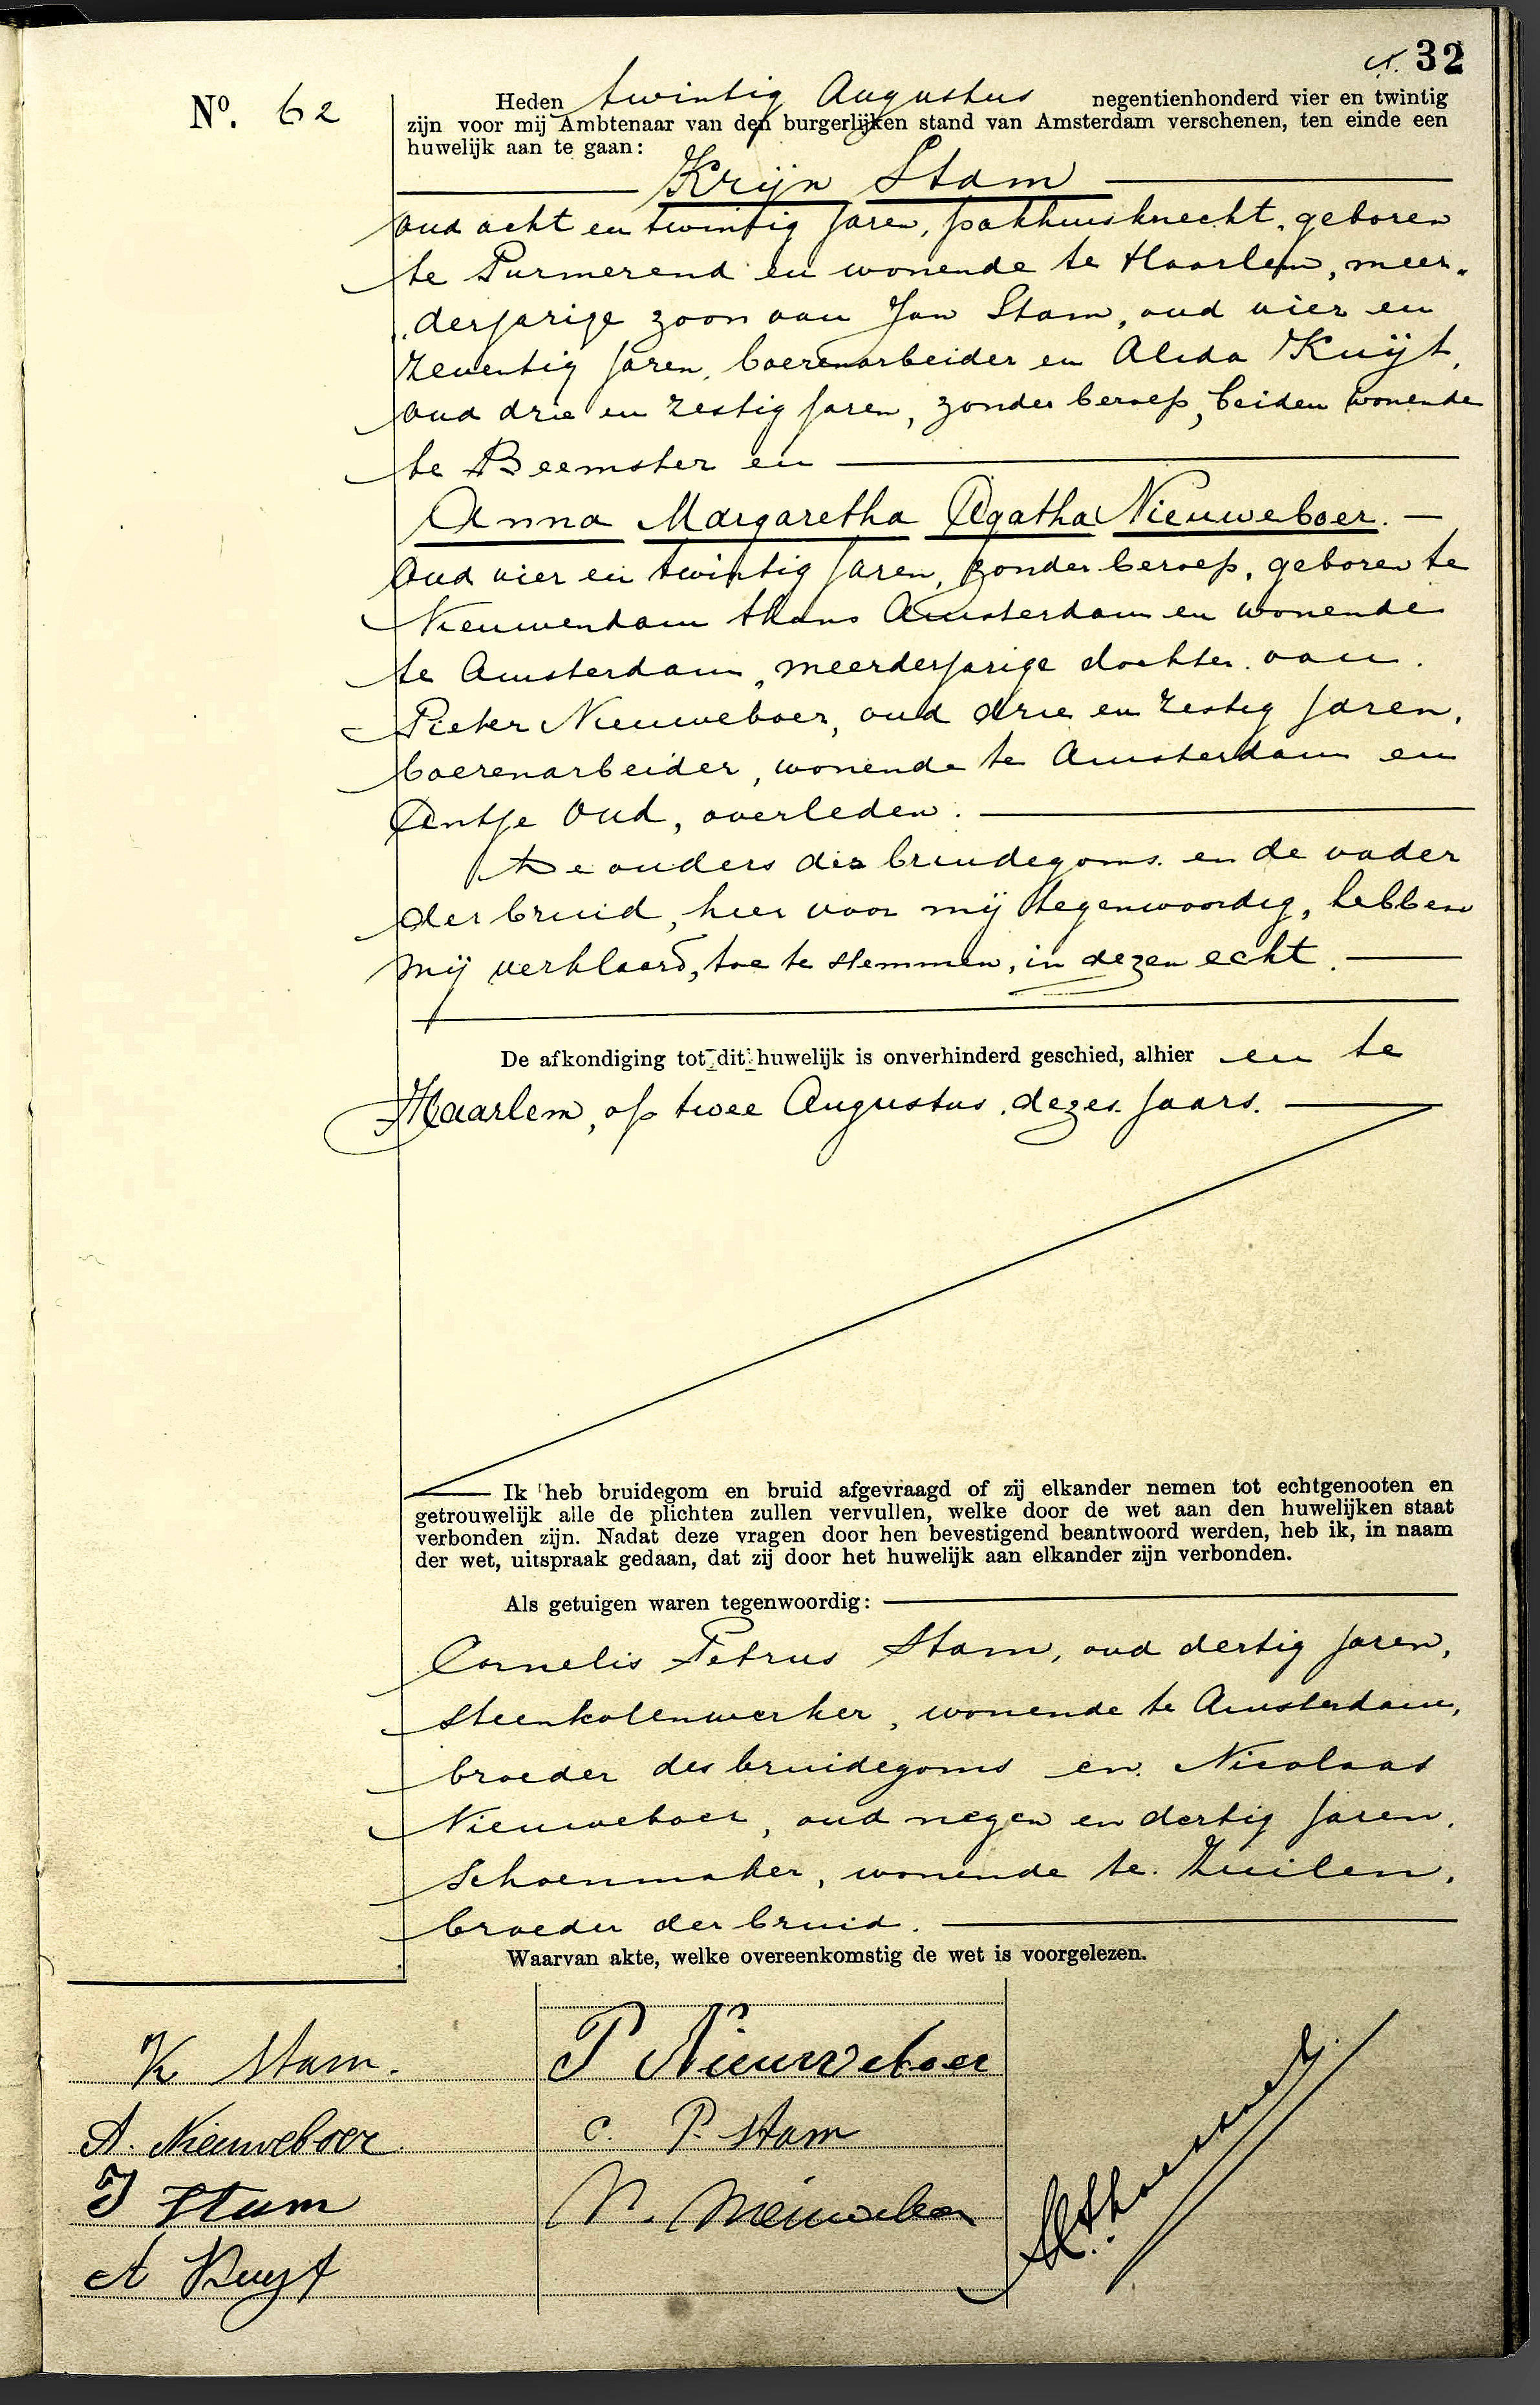 N. 32
No. 62
Heden twintig Augustus negentienhonderd vier en twintig
zijn voor mij Ambtenaar van den burgerlijken stand van Amsterdam verschenen, ten einde een
huwelijk aan te gaan:
Krijn Stam
oud acht en twintig jaren, pakhuisknecht, geboren
te Purmerend en wonende te Haarlem, meer„
„derjarige zoon van Jan Stam, oud vier en
zeventig jaren, boerenarbeider en Alida Kuijt,
oud drie en zestig jaren, zonder beroep, beiden wonende
te Beemster en
Anna Margaretha Agatha Nieuweboer.
oud vier en twintig jaren, zonder beroep, geboren te
Nieuwendam thans Amsterdam en wonende
te Amsterdam, meerderjarige dochter van
Pieter Nieuweboer, oud drie en zestig jaren,
boerenarbeider, wonende te Amsterdam en
Antje Oud, overleden.
De ouders des bruidegoms en de vader
der bruid, hier voor mij tegenwoordig, hebben
mij verklaard, toe te stemmen, in dezen echt.
De afkondiging tot dit huwelijk is onverhinderd geschied, alhier en te
Haarlem, op twee Augustus dezes jaars.
Ik heb bruidegom en bruid afgevraagd of zij elkander nemen tot echtgenooten en
getrouwelijk alle de plichten zullen vervullen, welke door de wet aan den huwelijken staat
verbonden zijn. Nadat deze vragen door hen bevestigend beantwoord werden, heb ik, in naam
der wet, uitspraak gedaan, dat zij door het huwelijk aan elkander zijn verbonden.
Als getuigen waren tegenwoordig:
Cornelis Petrus Stam, oud dertig jaren,
steenkolenwerker, wonende te Amsterdam,
broeder des bruidegoms en Nicolaas
Nieuweboer, oud negen en dertig jaren,
schoenmaker, wonende te Zuilen,
broeder der bruid.
Waarvan akte, welke overeenkomstig de wet is voorgelezen.
K Stam.
A. Nieuweboer
J Stam
A Kuyt
P Nieuweboer
C. P. Stam
N. Nieuweboer